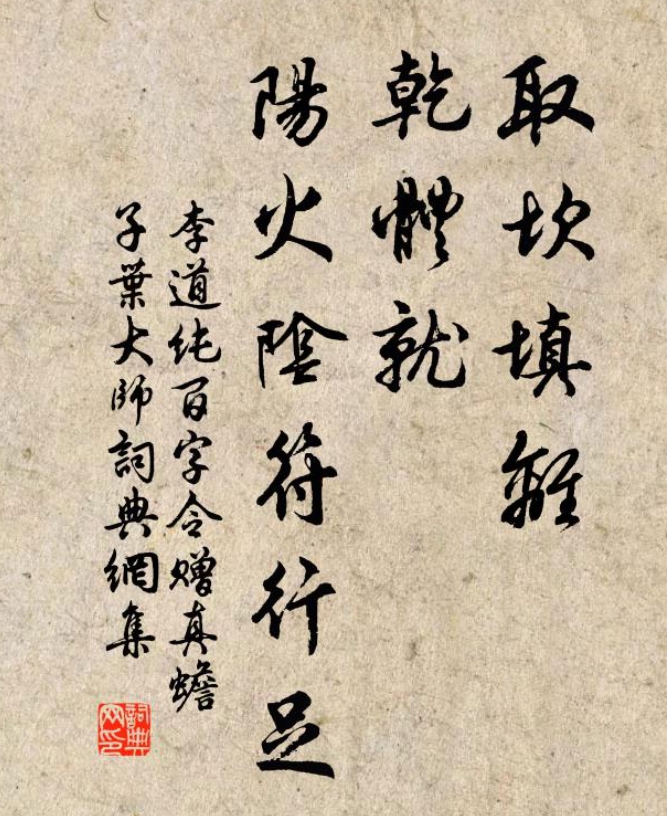 取坎填離
乾體就
陽火陰符行足
李道纯百字令赠真蟾
子葉大師詞典網集
詞典
网印